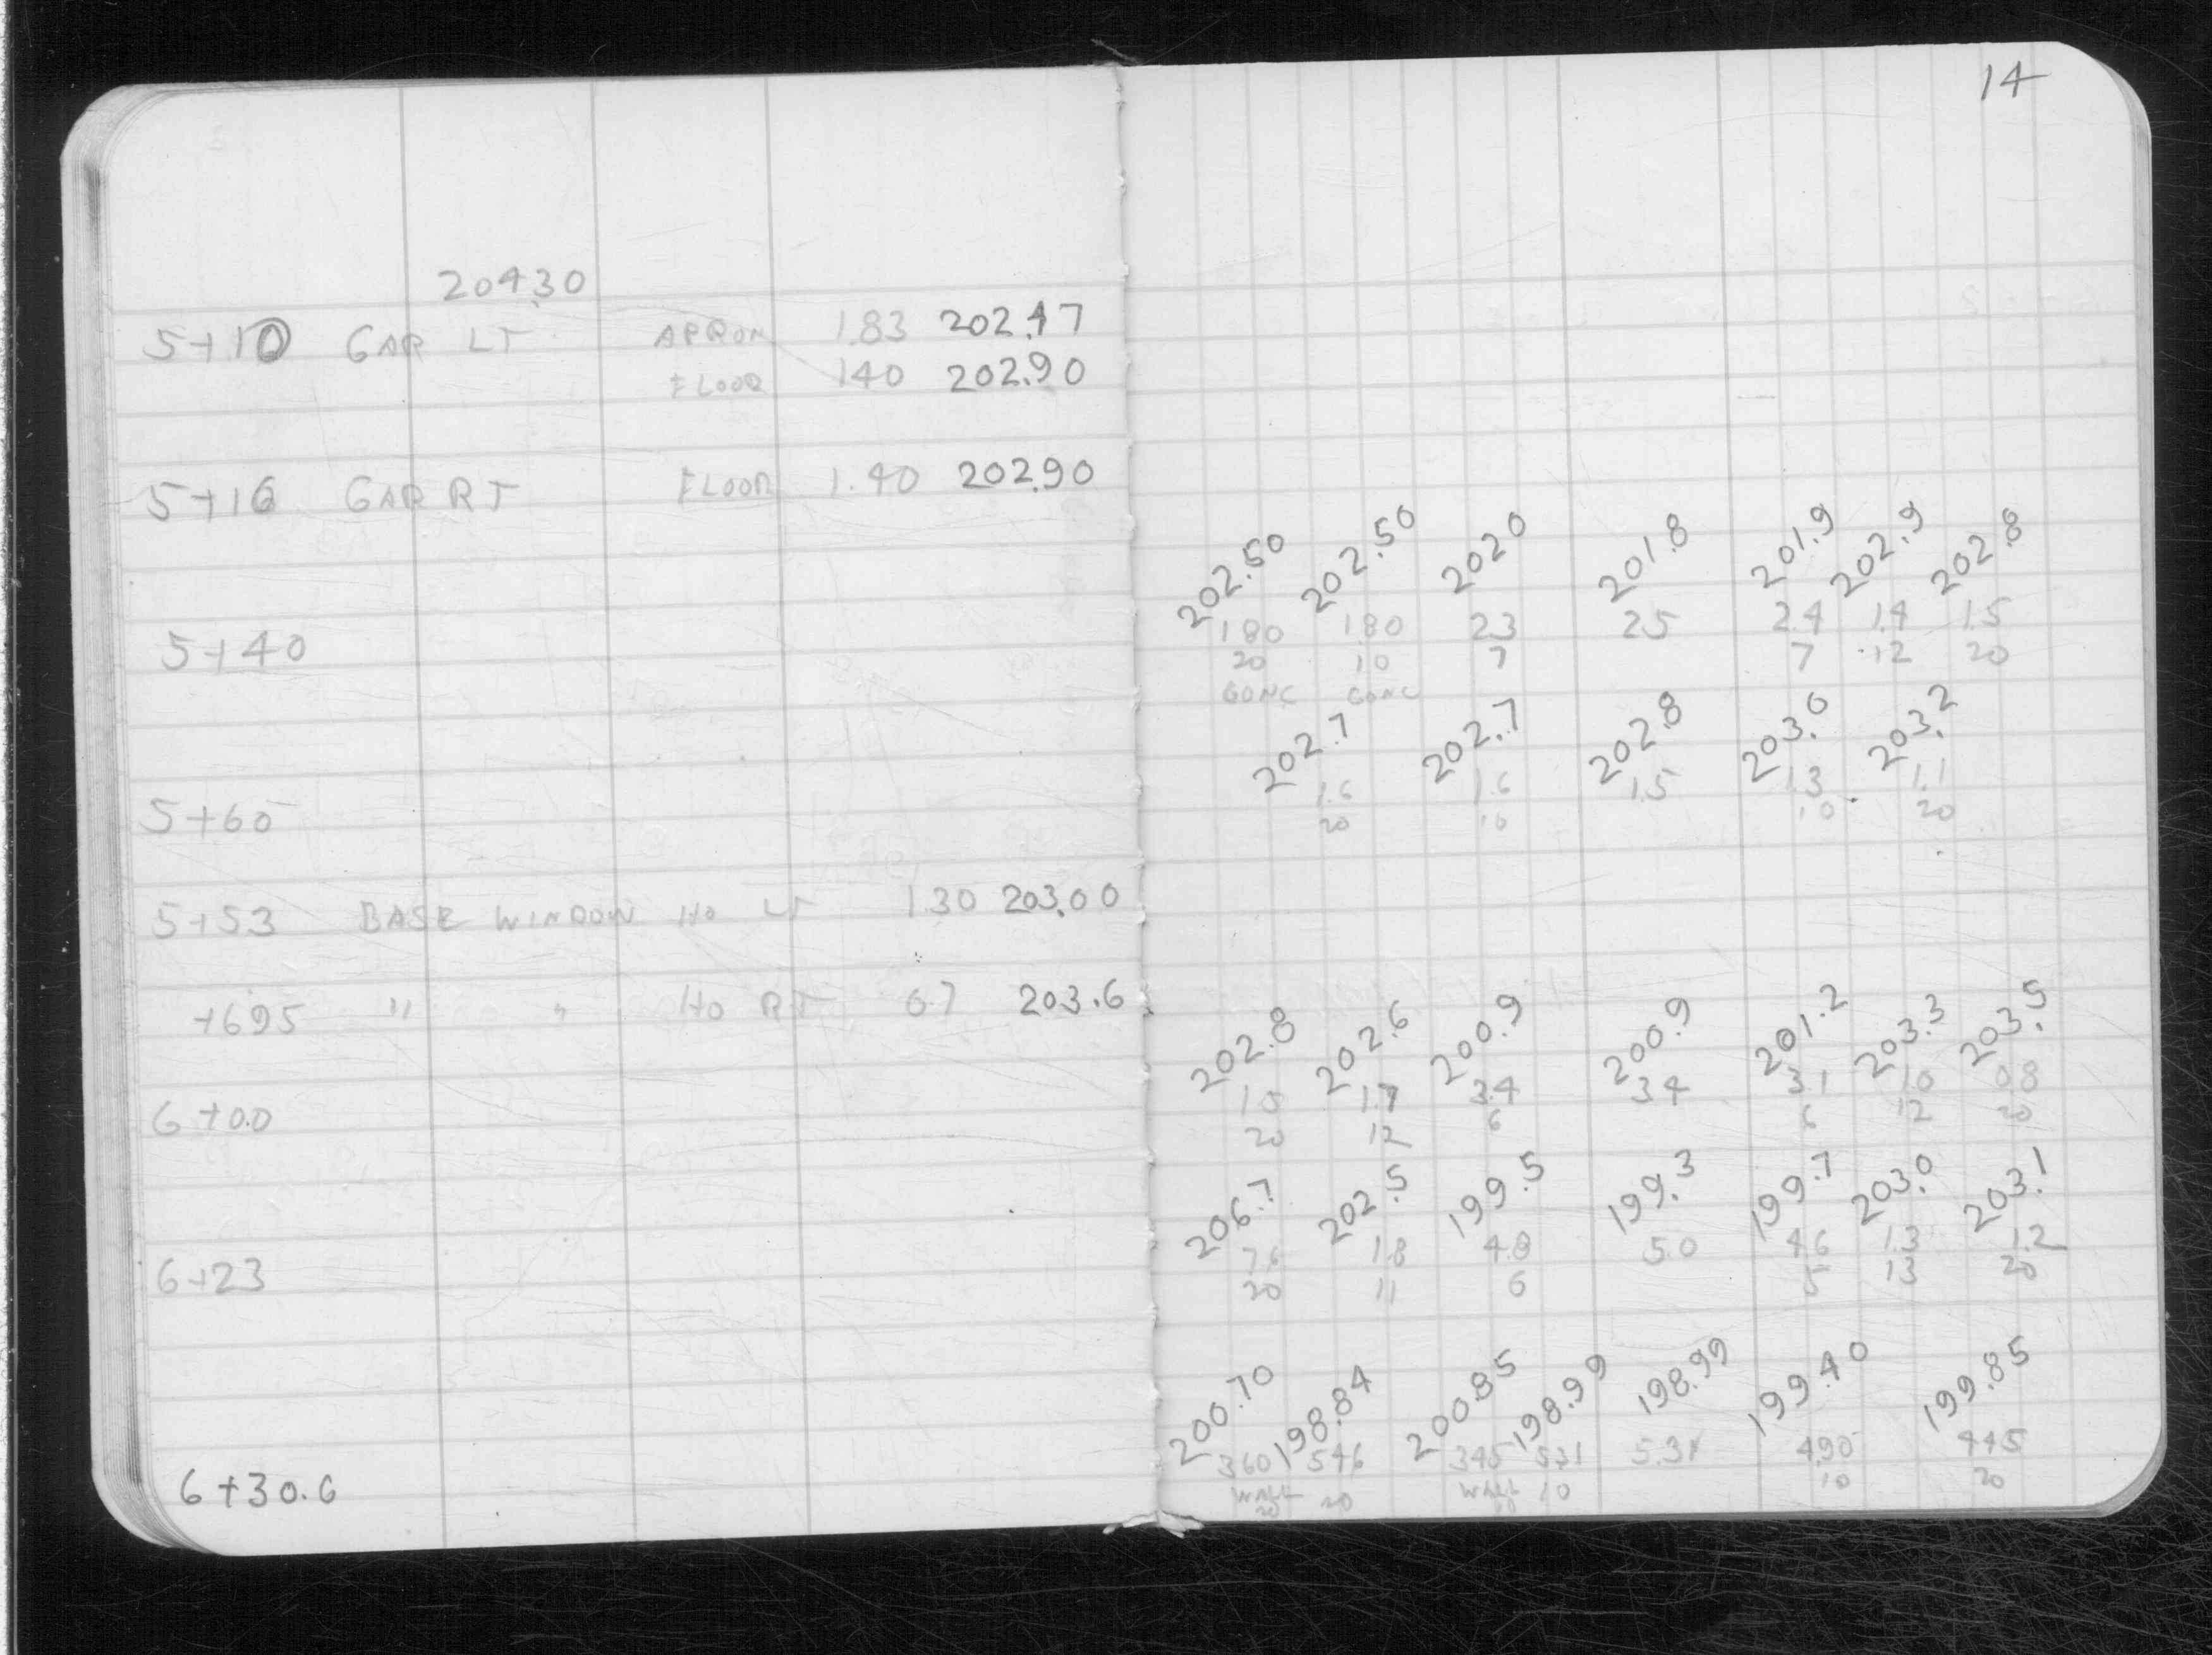 14
204.30
5+10 GAR LT APRON 1.83 202.47
FLOOR 1.40 202.90
5+16 GAR RT FLOOR 1.40 202.90
202.50 202.50 202.0 201.8 201.9 202.9 202.8
5+40 1.80 1.80 2.3 2.5 2.4 1.4 1.5
20 10 7 7 12 20
CONC CONC
202.7 202.7 202.8 203.0 203.2
1.6 1.6 1.5 1.3 1.1
5+60 20 10 10 20
5+53 BASE WINDOW HO LT 1.30 203.00
+69.5 " " HO RT 0.7 203.6
202.8 202.6 200.9 200.9 201.2 203.3 203.5
1.5 1.7 3.4 3.4 3.1 1.0 0.8
6+00 20 12 6 6 12 20
206.7 202.5 199.5 199.3 199.7 203.0 203.1
1.8 4.8 5.0 4.6 1.3 1.2
6+23 20 11 6 5 13 20
200.70 198.84 200.85 198.99 198.99 199.40 199.85
360 546 345 531 5.31 490 445
6+30.6 WALL 20 WALL 10 10 20
20 10